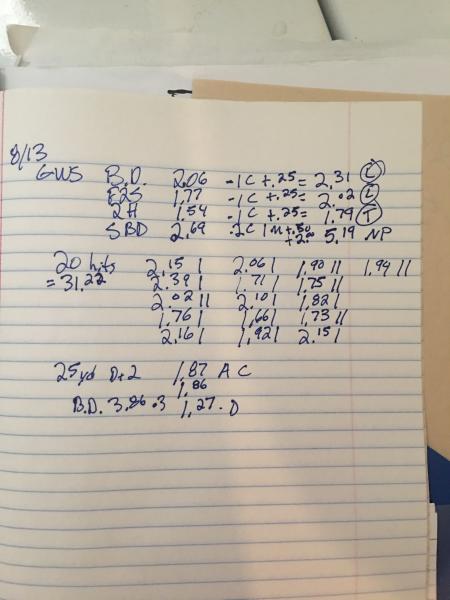 8/13
GWS B.D. 2.06 -1C +.25 = 2.31 (L)
E2S 1.77 -1C +.25 = 2.02 (L)
2H 1.54 -1C +.25 = 1.79 (T)
SBD 2.69 -2C 1M +.50 +2.00 5.19 NP
20 hits 2.15 | 2.06 | 1.90 || 1.94 ||
= 31.22 2.39 | 1.71 | 1.75 ||
2.02 || 2.10 | 1.82 |
1.76 | 1.66 | 1.73 ||
2.16 | 1.92 | 2.15 |
25yd D+2 1.87 A C
1.86
B.D. 3.86 .3 1.27 . D